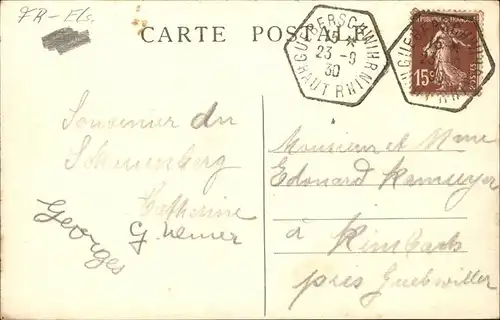 FR-Els.
CARTE POSTALE
GUEBERSCHWIHR
23-9
30
HAUT RHIN
REPUBLIQUE FRANÇAISE
15c
POSTES
Souvenir du
Schauenberg
Catherine
Georges
G. Nemer
Monsieur et Mme
Edouard
à Rimbach
près Guebwiller